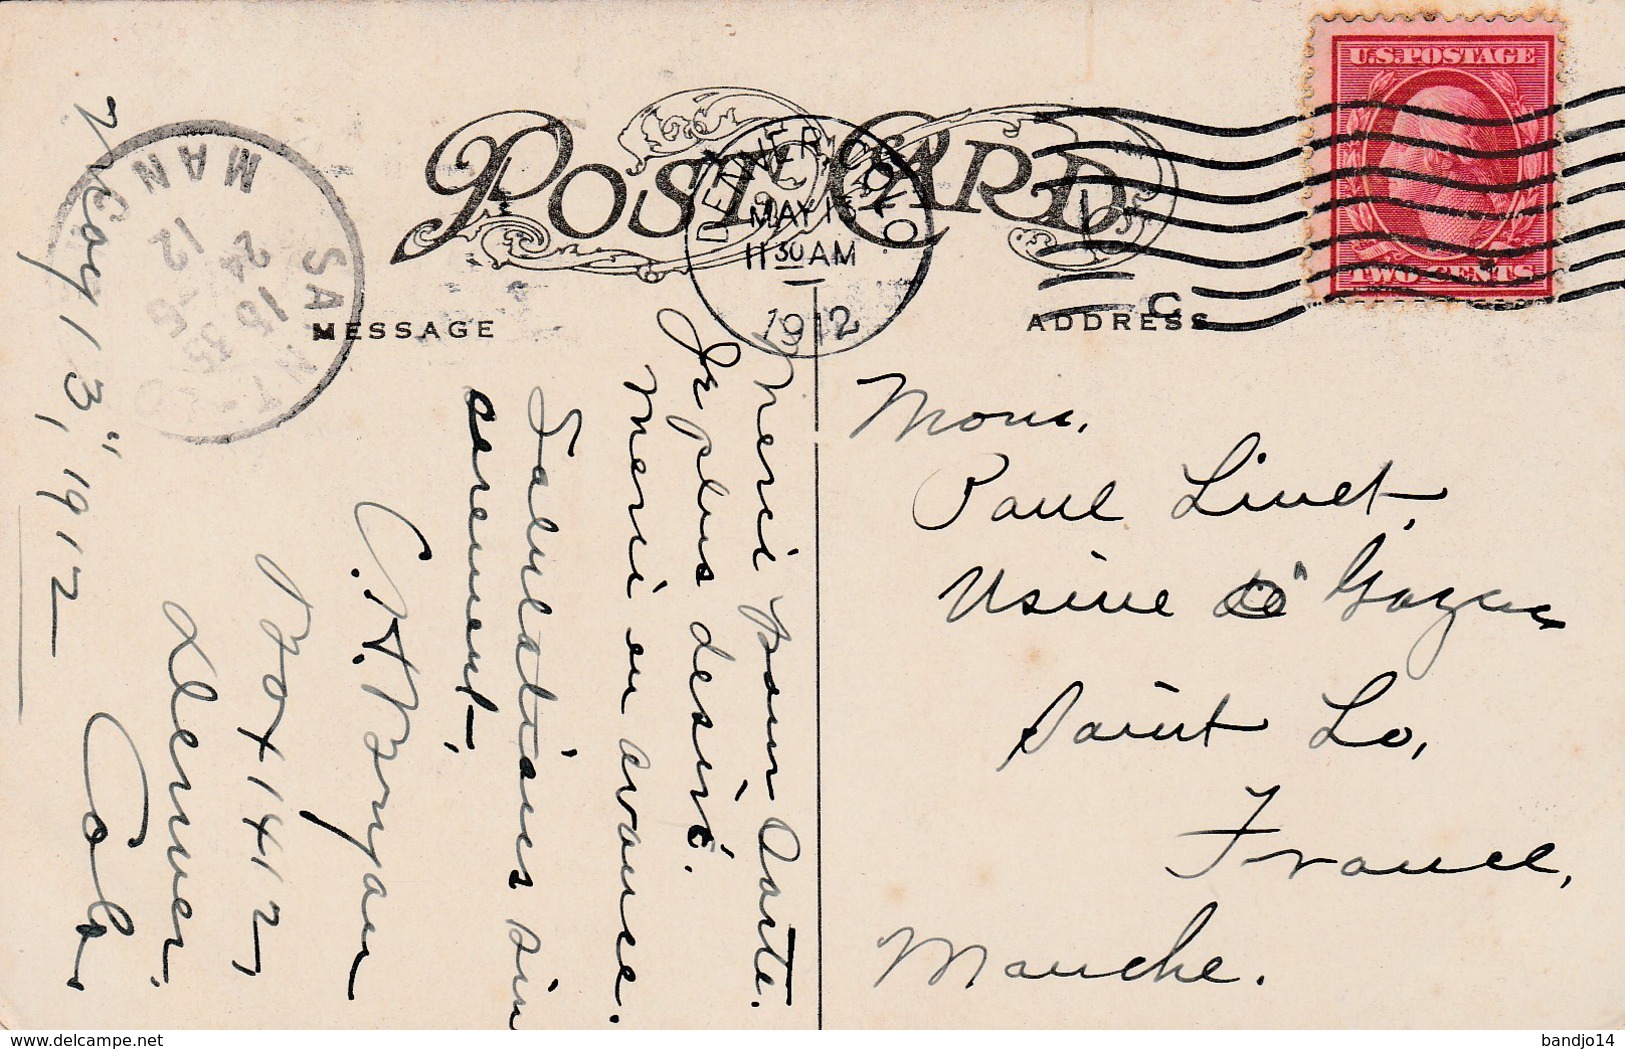 POST CARD
U.S. POSTAGE
TWO CENTS
DENVER COLO
MAY 1
11 30 AM
1912
C
MESSAGE
ADDRESS
SAINT-LO
MAN
24
12
May 13," 1912
Merci pour Carte.
Je plus desiré.
Merci en avance.
Salulations sin
cerement,
C. H. Bryan
Box 1412,
Denver,
Colo.
Mons.
Paul Linet,
Usine á Gaz
Saint Lo,
France,
Manche.
www.delcampe.net
bandjo14